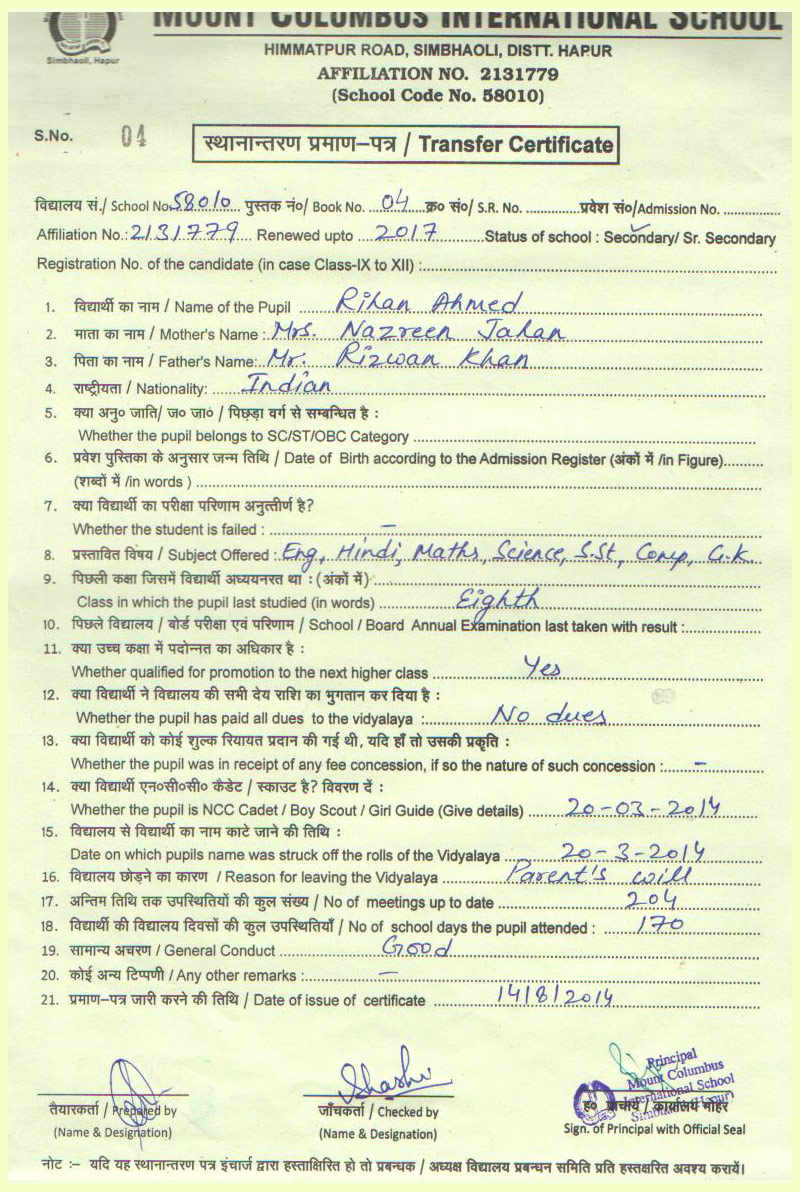 MOUNT COLUMBUS INTERNATIONAL SCHOOL
Simbhaoli, Hapur
HIMMATPUR ROAD, SIMBHAOLI, DISTT. HAPUR
AFFILIATION NO. 2131779
(School Code No. 58010)
S.No. 04
स्थानान्तरण प्रमाण–पत्र / Transfer Certificate
विद्यालय सं./ School No. 58010 पुस्तक नं०/ Book No. 04 क्र० सं०/ S.R. No. प्रवेश सं०/Admission No.
Affiliation No.: 2131779 Renewed upto 2017 Status of school : Secondary/ Sr. Secondary
Registration No. of the candidate (in case Class-IX to XII) :
1. विद्यार्थी का नाम / Name of the Pupil Rihan Ahmed
2. माता का नाम / Mother's Name : Mrs. Nazreen Jahan
3. पिता का नाम / Father's Name: Mr. Rizwan Khan
4. राष्ट्रीयता / Nationality: Indian
5. क्या अनु० जाति/ ज० जा० / पिछड़ा वर्ग से सम्बन्धित है :
Whether the pupil belongs to SC/ST/OBC Category
6. प्रवेश पुस्तिका के अनुसार जन्म तिथि / Date of Birth according to the Admission Register (अंकों में /in Figure)
(शब्दों में /in words )
7. क्या विद्यार्थी का परीक्षा परिणाम अनुत्तीर्ण है?
Whether the student is failed : –
8. प्रस्तावित विषय / Subject Offered : Eng, Hindi, Maths, Science, S.St, Comp, G.K.
9. पिछली कक्षा जिसमें विद्यार्थी अध्ययनरत था : (अंकों में)
Class in which the pupil last studied (in words) Eighth
10. पिछले विद्यालय / बोर्ड परीक्षा एवं परिणाम / School / Board Annual Examination last taken with result :
11. क्या उच्च कक्षा में पदोन्नत का अधिकार है :
Whether qualified for promotion to the next higher class Yes
12. क्या विद्यार्थी ने विद्यालय की सभी देय राशि का भुगतान कर दिया है :
Whether the pupil has paid all dues to the vidyalaya : No dues
13. क्या विद्यार्थी को कोई शुल्क रियायत प्रदान की गई थी, यदि हाँ तो उसकी प्रकृति :
Whether the pupil was in receipt of any fee concession, if so the nature of such concession : –
14. क्या विद्यार्थी एन०सी०सी० कैडेट / स्काउट है? विवरण दें :
Whether the pupil is NCC Cadet / Boy Scout / Girl Guide (Give details) 20-03-2014
15. विद्यालय से विद्यार्थी का नाम काटे जाने की तिथि :
Date on which pupils name was struck off the rolls of the Vidyalaya 20-3-2014
16. विद्यालय छोड़ने का कारण / Reason for leaving the Vidyalaya Parent's will
17. अन्तिम तिथि तक उपस्थितियों की कुल संख्य / No of meetings up to date 204
18. विद्यार्थी की विद्यालय दिवसों की कुल उपस्थितियाँ / No of school days the pupil attended : 170
19. सामान्य अचरण / General Conduct Good
20. कोई अन्य टिप्पणी / Any other remarks : –
21. प्रमाण–पत्र जारी करने की तिथि / Date of issue of certificate 14/8/2014
Shashi
Principal
Mount Columbus
International School
Simbhaoli (Hapur)
तैयारकर्ता / Prepared by जाँचकर्ता / Checked by ह० प्राचार्य / कार्यालय मोहर
(Name & Designation) (Name & Designation) Sign. of Principal with Official Seal
नोट :– यदि यह स्थानान्तरण पत्र इंचार्ज द्वारा हस्ताक्षिरित हो तो प्रबन्धक / अध्यक्ष विद्यालय प्रबन्धन समिति प्रति हस्तक्षरित अवश्य करायें।